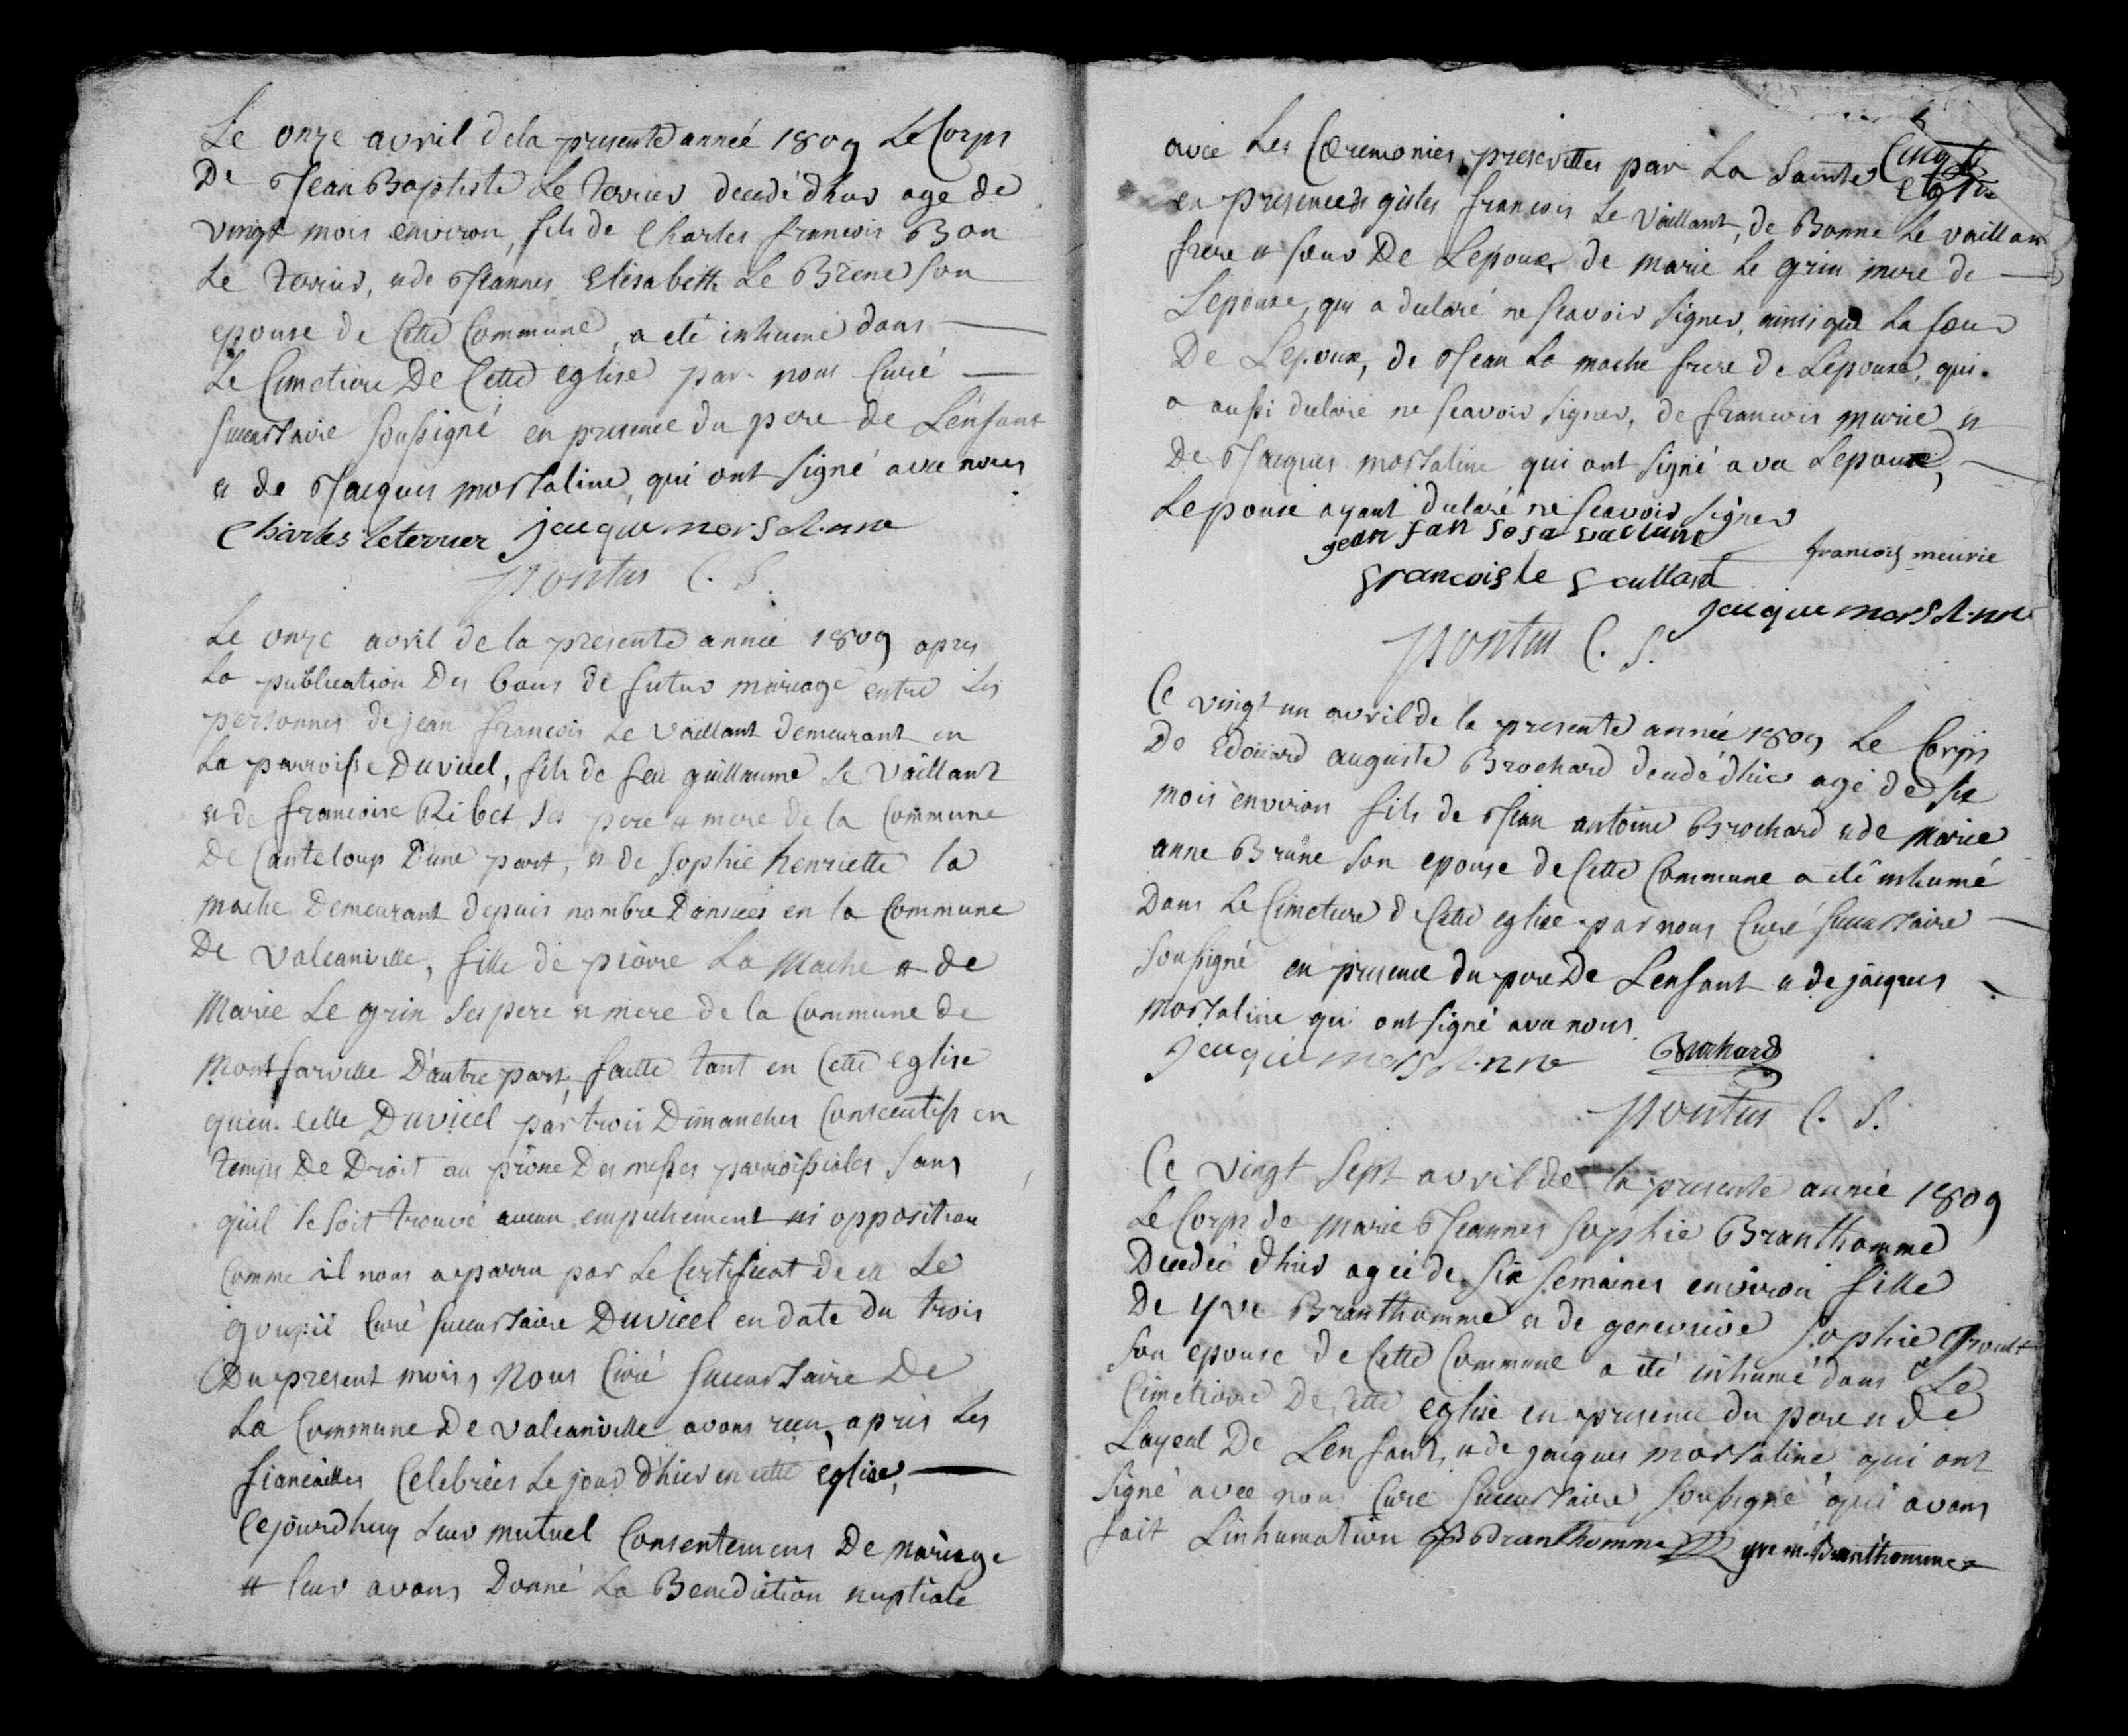 Le onze avril de la presente année 1809 Le Corps
De Jean Baptiste Le terrier decedé d'hier age de
vingt mois environ, fils de Charles francois Bon
Le terrier, et de Jeanne Elisabeth Le Brene son
epouse de Cette Commune, a eté inhumé dans
Le Cimetiere De Cette eglise par nous Curé
succursaire soussigné en presence du pere de L'enfant
et de Jacques morsaline, qui ont signé avec nous
Charles leterrier jacque morsaline
Pontus C. S.
Le onze avril de la presente année 1809 apres
La publication Des bans de futur mariage entre Les
personnes de jean francois Le Vaillant demeurant en
La parroisse Duvicel, fils de feu guillaume Le Vaillant
et de francoise Ribet ses pere et mere de la Commune
De Canteloup D'une part, et de Sophie henriette la
mache Demeurant depuis nombre D'années en la Commune
De valcanville, fille de pierre La Mache et de
Marie Le grin ses pere et mere de la Commune de
Montfarville D'autre part, faitte tant en Cette eglise
qu'en celle Duvicel par trois Dimanches Consecutifs en
temps De Droit au prône Des messes parroissiales sans
qu'il se soit trouvé aucun empechement ni opposition
Comme il nous a parru par Le Certificat de
goupil Curé succursaire Duvicel en date du trois
Du present mois, Nous Curé succursaire De
La Commune De valcanville avons recu, apris Les
fiancailles Celebrées Le jour d'hier en cette église,
Cejourdhuy Leur mutuel Consentemens De mariage
et leur avons Donné La Benediction nuptiale
avec Les Cæremonies prescrittes par La Sainte Eglise
en presence de gisles francois Le Vaillant, de Bonne Le vaillant
frere et sœur De L'epoux, de marie Le grin mere de
L'epouse, qui a declaré ne scavoir signer, ainsi que La sœur
De L'epoux, de Jean La mache frere de L'épouse, qui
a aussi declaré ne scavoir signer, de francois murie et
De Jacques morsaline qui ont signé avec L'epoux,
L'epouse ayant declaré ne scavoir signer
francois meurie
francois le
jacque morsaline
Pontus C. S.
Ce vingt un avril de la presente année 1809 Le Corps
De Edouard auguste Brochard decedé d'hier agé de six
mois environ fils de Jean antoine Brochard et de Marie
anne Brune son epouse de Cette Commune a eté inhumé
Dans Le Cimetiere de Cette eglise par nous Curé succursaire
soussigné en presence du pere De L'enfant et de jacques
morsaline qui ont signé avec nous.
jacque morsaline Brochard
Pontus C. S.
Ce vingt sept avril de la presente année 1809
Le Corps de Marie Jeanne Sophie Branthomme
Decedée d'hier agée de six semaines environ fille
De yve Branthomme et de genevieve Sophie Groult
son epouse de Cette Commune a eté inhumé dans Le
Cimetiere De Cette eglise en presence du pere et de
L'ayeul De L'enfant, et de jacques morsaline qui ont
signé avec nous Curé succursaire soussigné qui avons
fait L'inhumation Branthomme yve m. Branthomme